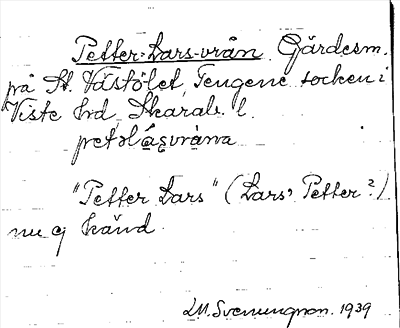 Petter-Lars-vrån Gärdesm.
på St. Västölet, Tengene socken i
Viste hrd, Skarab. l.
petəláṣvrȧna
"Petter Lars" (Lars' Petter?)
nu ej känd
L.M. Svenungson. 1939